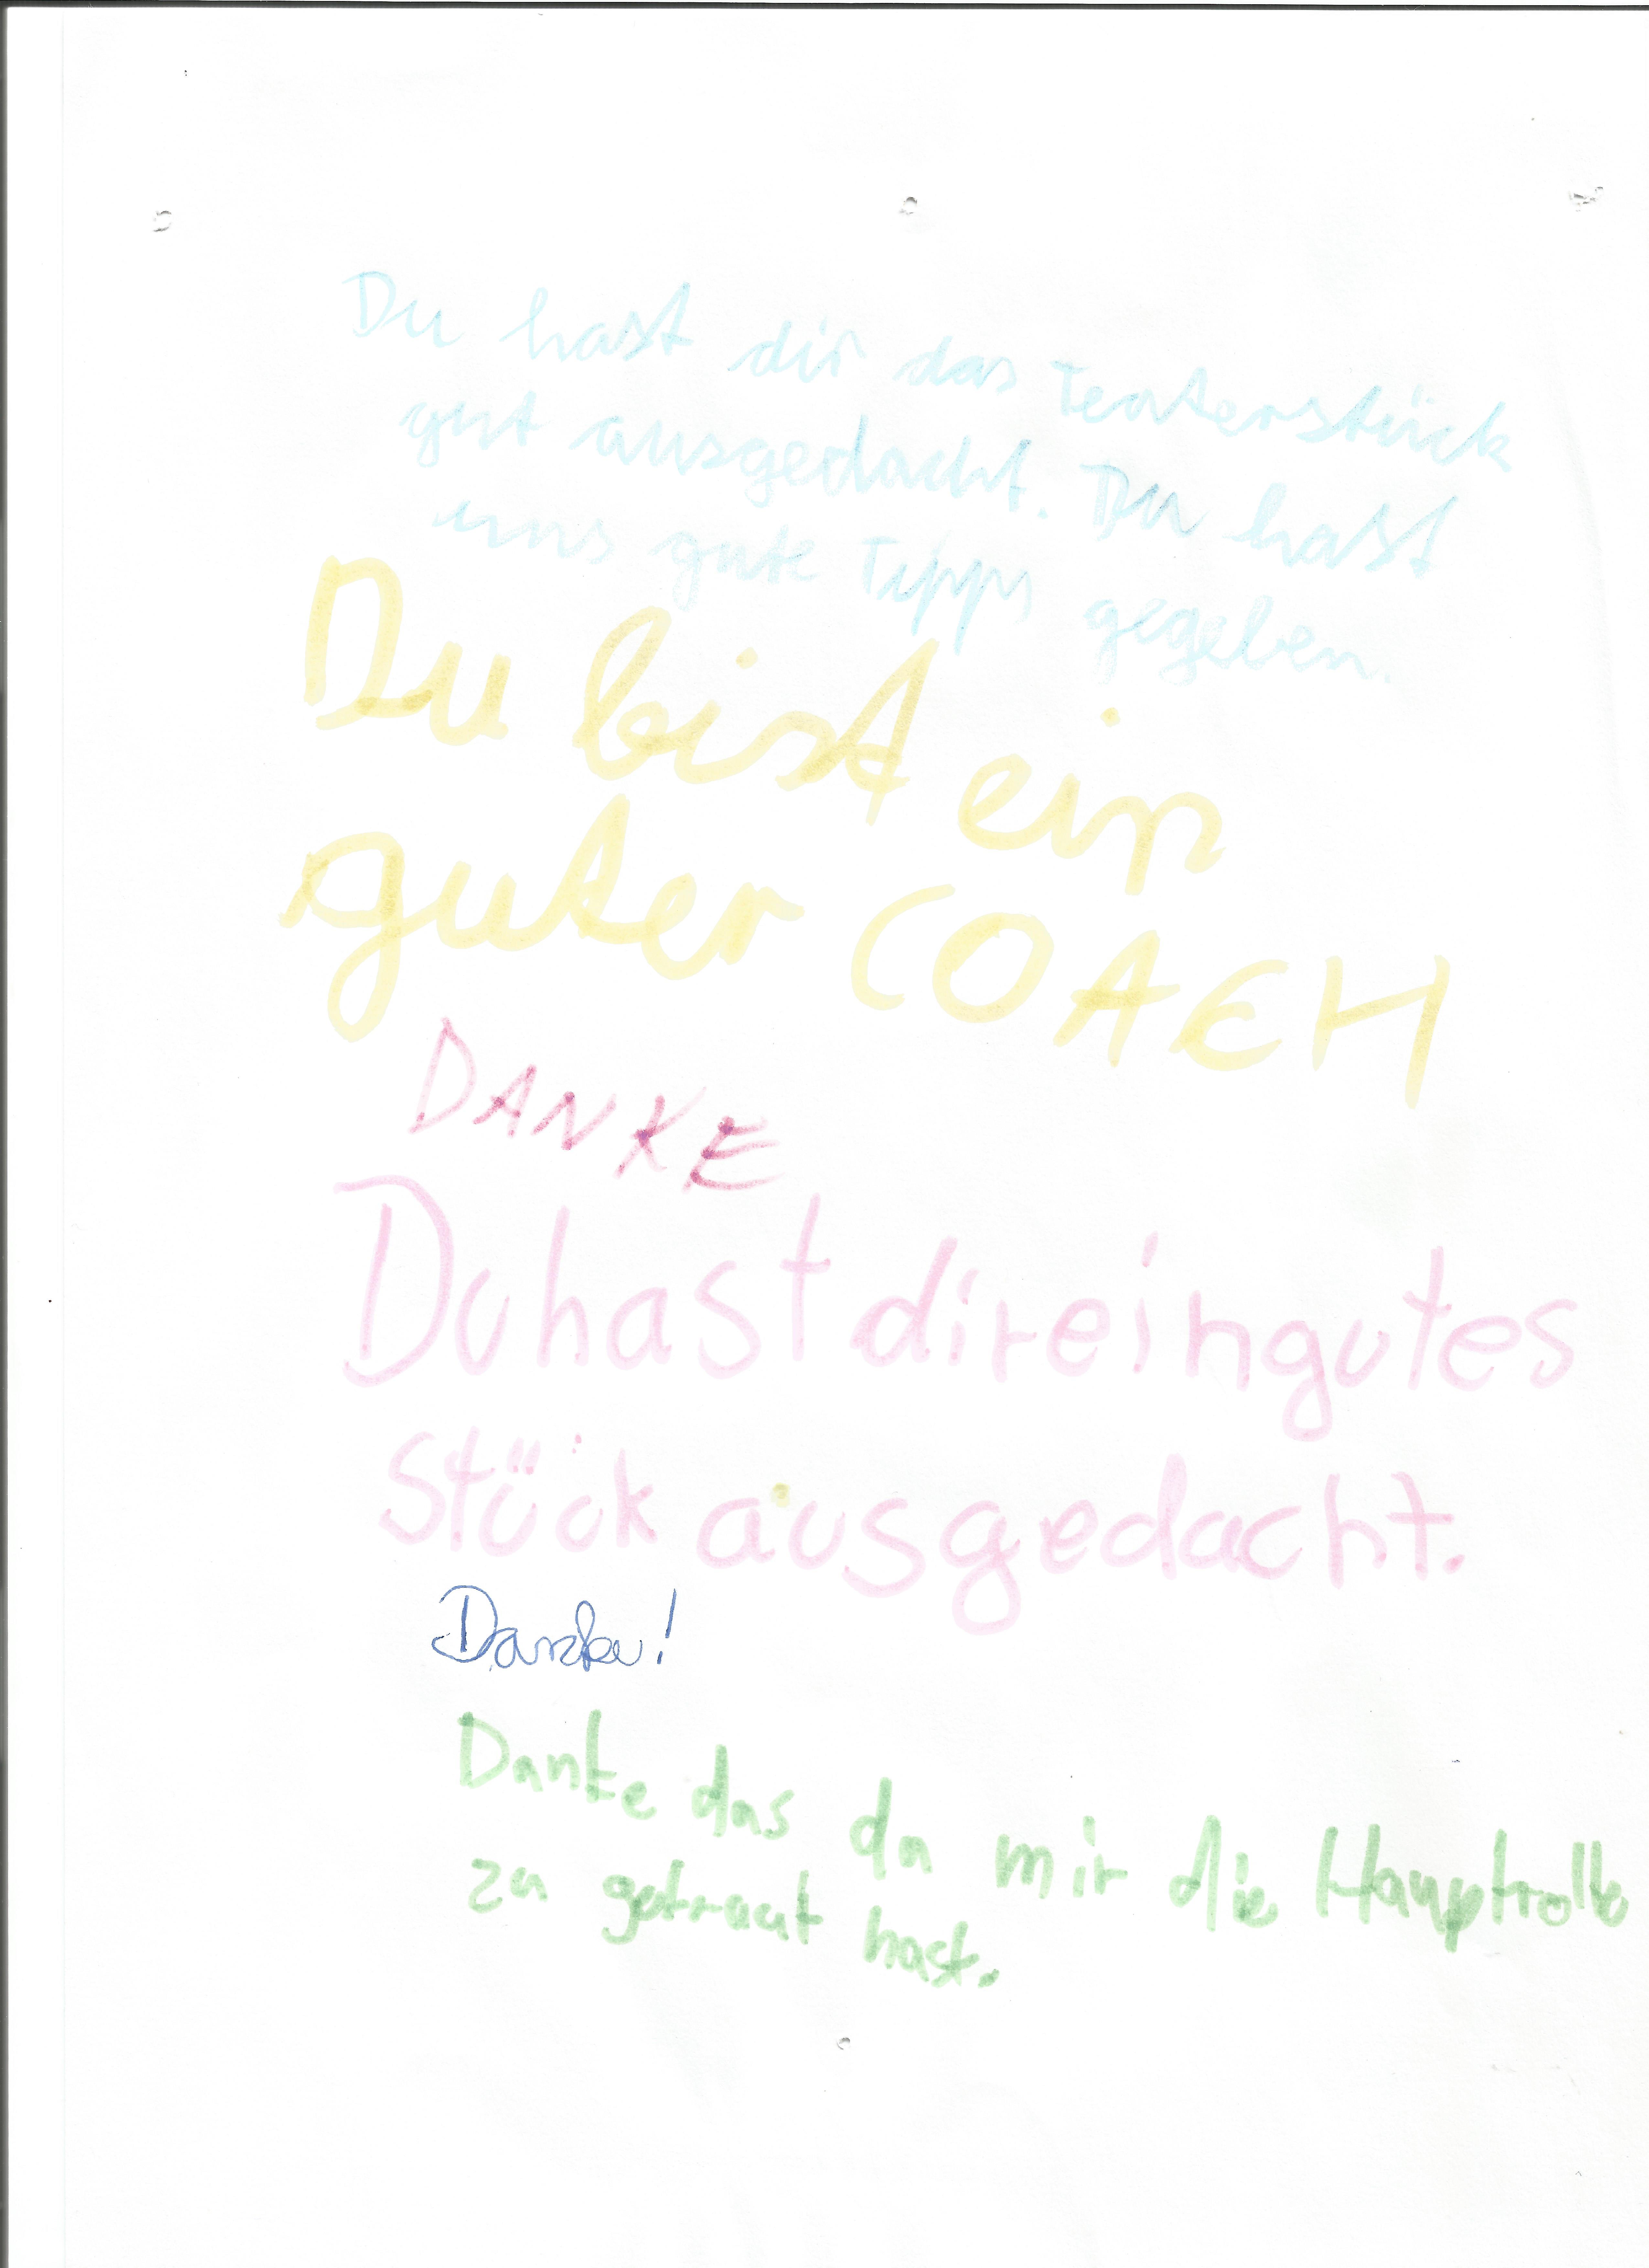 Du hast dir das Teaterstück
gut ausgedacht. Du hast
uns gute Tipps gegeben.
Du bist ein
guter COACH
DANKE
Du hast dir ein gutes
Stück ausgedacht.
Danke!
Danke das du mir die Hauptrolle
zu getraut hast.